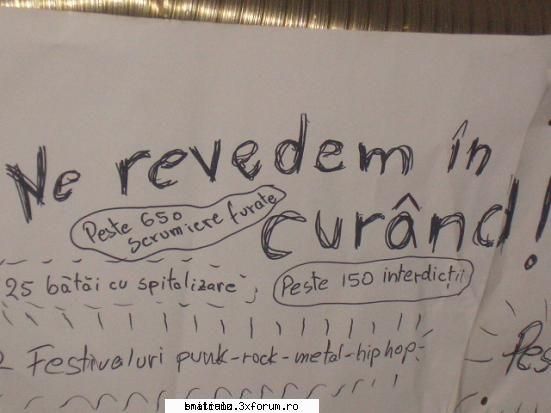 Ne revedem în
curând!
Peste 650
scrumiere furate
25 bătăi cu spitalizare;
Peste 150 interdicții
2 Festivaluri punk-rock-metal-hip hop
Pes
.3xforum.ro